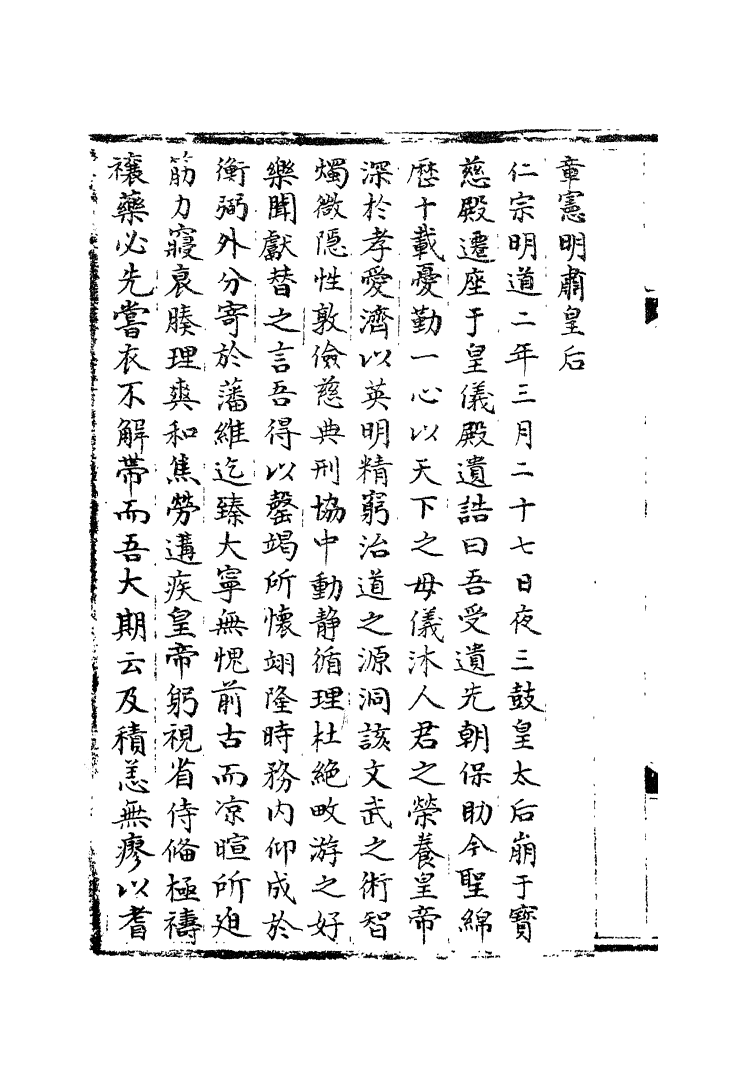 章憲明肅皇后
仁宗明道二年三月二十七日夜三鼓皇太后崩于寶
慈殿遷座于皇儀殿遺誥曰吾受遺先朝保助今聖綿
歷十載憂勤一心以天下之母儀沐人君之榮養皇帝
深於孝愛濟以英明精窮治道之源洞該文武之術智
燭微隱性敦儉慈典刑協中動靜循理杜絕畋游之好
樂聞獻替之言吾得以罄竭所懷翊隆時務內仰成於
衡弼外分寄於藩維迄臻大寧無愧前古而凉暄所迫
筋力寢衰腠理爽和焦勞遘疾皇帝躬視省侍偹極禱
禳藥必先嘗衣不解帶而吾大期云及積恙無瘳以耆